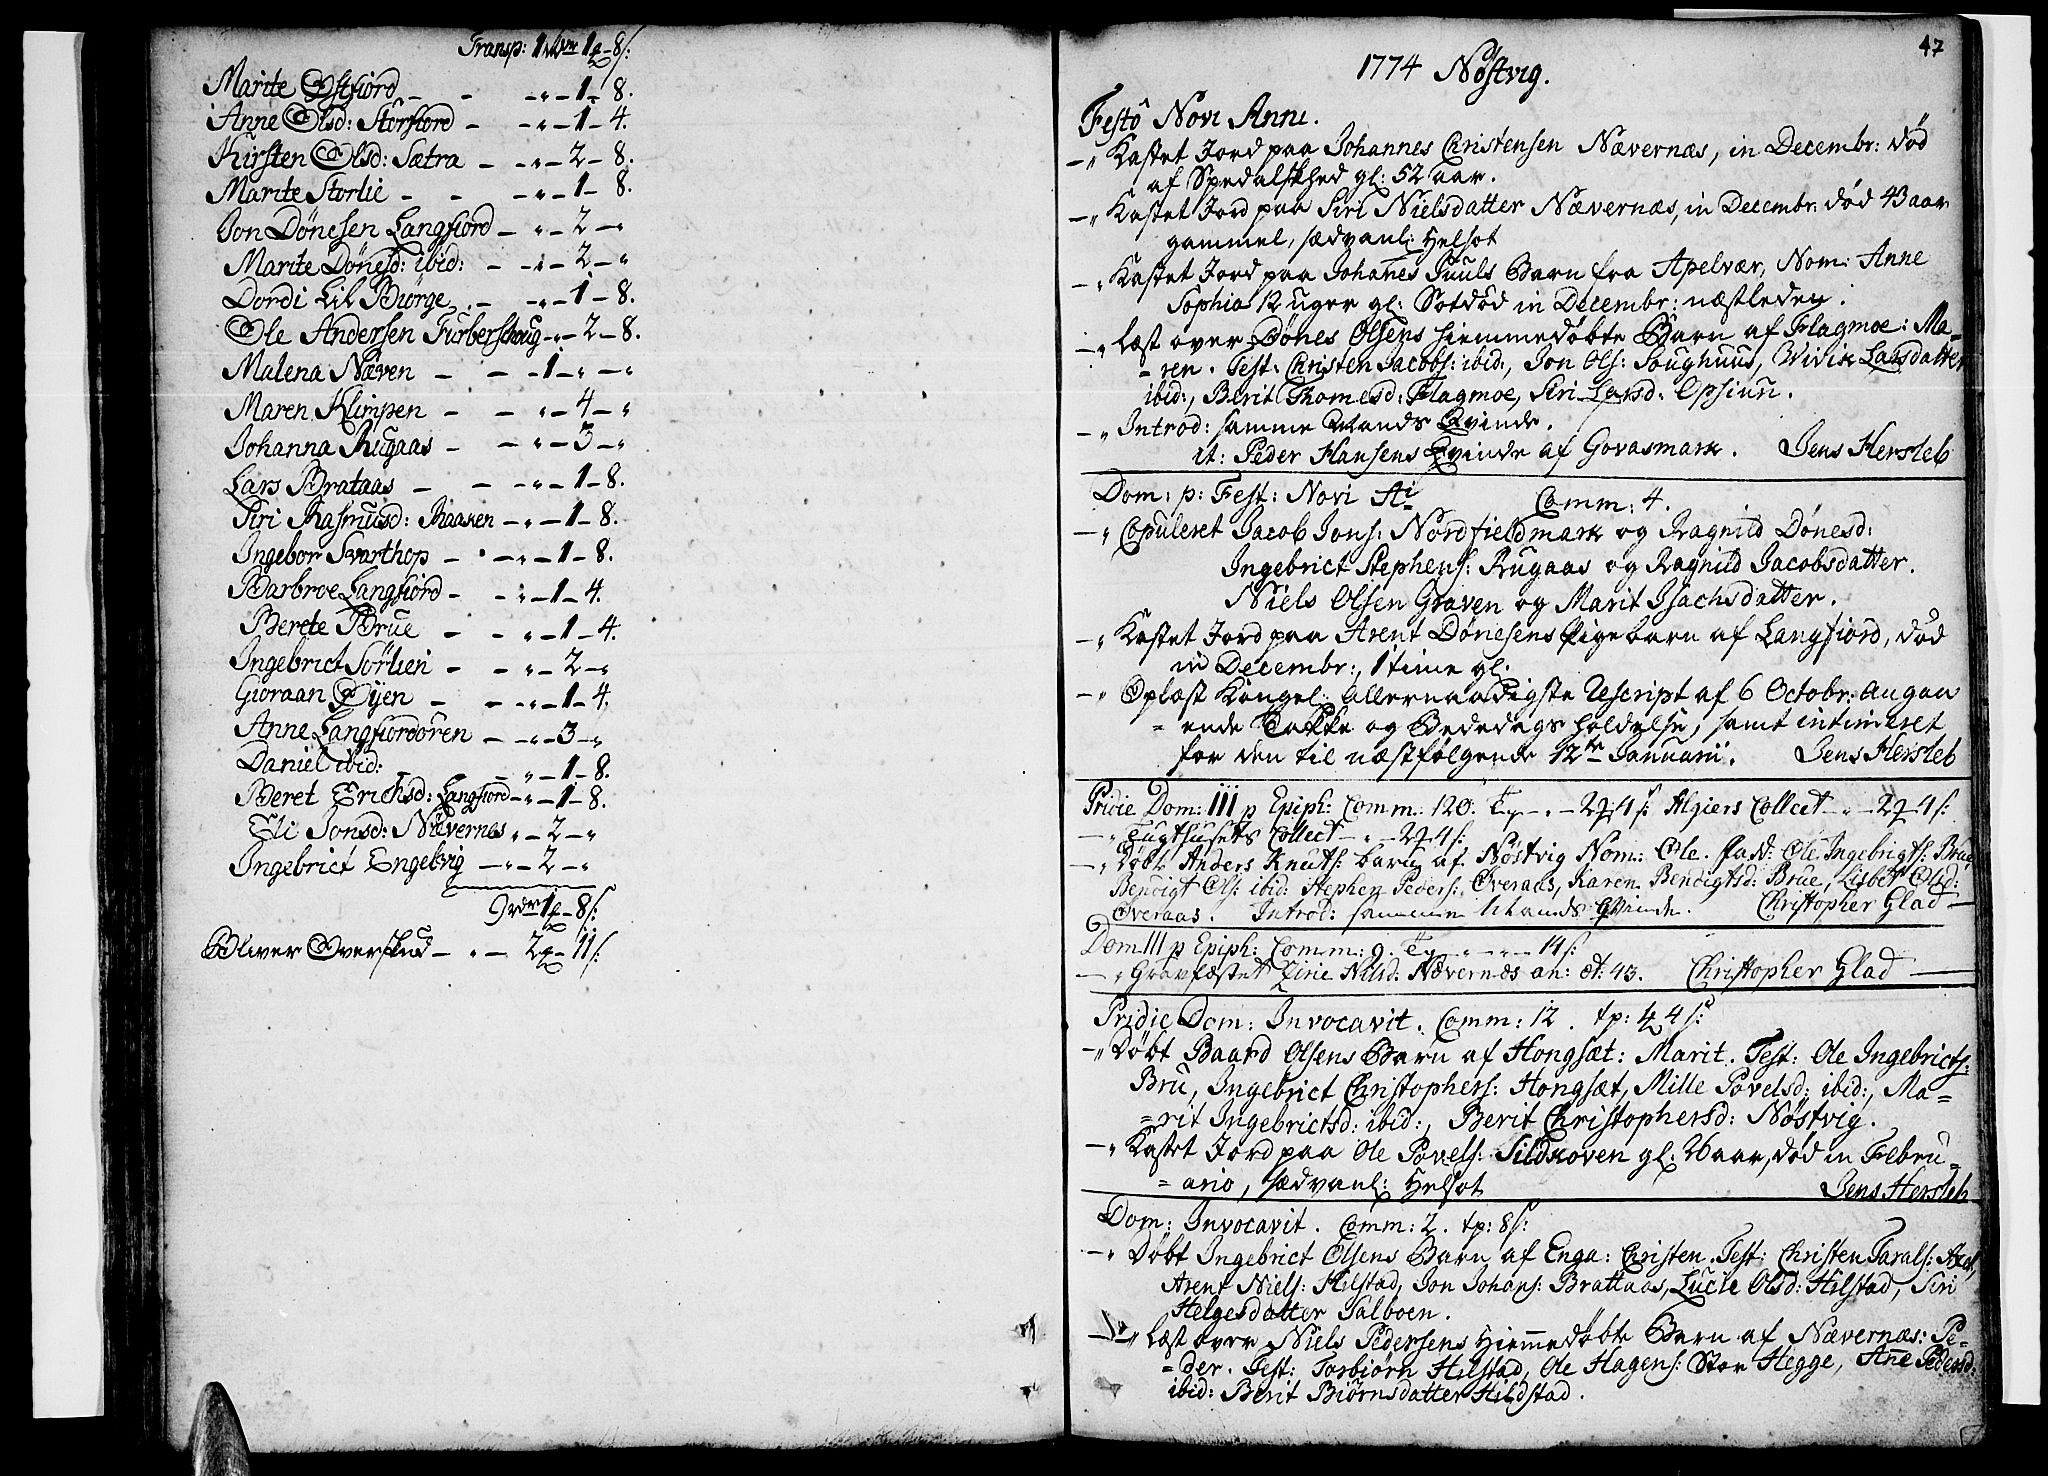 Transp: 1 rdr 1 - 8 s:
Marite Østfiord - - - „ - 1 - 8.
Anne Olsd: Storfiord - - „ - 1 - 4.
Kirsten Olsd: Sætra - - „ - 2 - 8.
Marite Storlie - - - „ - 1 - 8.
Jon Dønesen Langfiord - „ - 2 - „
Marite Dønesd: ibid: - - „ - 2 - „
Dordi Lil Børge - - „ - 1 - 8.
Ole Andersen Furberschoug - „ - 2 - 8.
Malena Næven - - - 1 - „ - „
Maren Klimpen - - „ - 4 - „
Johanna Rugaas - - „ - 3 - „
Lars Brataas - - - „ - 1 - 8.
Siri Rasmusd: Raaken - „ - 1 - 8.
Ingebor Svarthop - - „ - 1 - 8.
Barbroe Langfiord - - „ - 1 - 4.
Berete Brue - - „ - 1 - 4.
Ingebrict Sörlien - - „ - 2 - „
Gioraan Øyen - - „ - 1 - 4.
Anne Langfiordören - „ - 3 - „
Daniel ibid: - „ - 1 - 8.
Beret Erichsd: Langfiord - „ - 1 - 8.
Eli Jonsd: Nævernes „ - 2 - „
Ingebrict Engelvig - „ - 2 - „
9 rdr 1 - 8 s:
Bliver Overskud - „ - 2 - 11 s:
47
1774 Nøstvig.
Festo Novi Anni.
- „ Kastet Jord paa Johannes Christensen Nævernæs, in Decembr: død
af Spedalskhed gl: 52 aar.
- „ Kastet Jord paa Siri Nielsdatter Nævernæs, in Decembr: død 43 aar
gammel, sædvanl: Helsot
- „ Kastet Jord paa Johañes Juuls Barn fra Apelvær, Nom: Anne
Sophia 12 uger gl: Sotdød in Decembr: næstleden.
- „ Læst over Dønes Olsens hiemmedøbte Barn af Flagmoe: Ma-
- ren. Test: Christen Jacobs: ibid:, Jon Ols: Soughuus, Wivike Larsdatter
ibid:, Berit Thomesd: Flagmoe, Siri Larsd: Opsiun.
- „ Introd: samme Mands Qvinde.
it: Peder Hansens Qvinde af Govasmark. Jens Hersleb
Dom: p: Fest: Novi Ai Comm: 4.
- „ Copuleret Jacob Jons: Nordfieldmark og Ragnild Dønesd:
Ingebrict Stephens: Rugaas og Ragnild Jacobsdatter.
Niels Olsen Graven og Marit Isachsdatter.
- „ Kastet Jord paa Arent Dønesens Pigebarn af Langfiord, død
in Decembr:, 1 time gl:
- „ Oplæst Kongel: allernaadigste Rescript af 6 Octobr: angaa
- ende Takke og Bededags holdelse, samt intimeret
for den til næstfølgende 12te Januarii. Jens Hersleb
Pridie Dom: III p Epiph: Comm: 120. Tp - „ - 2 4 s: Algiers Collect - „ - 2 4 s:
- „ Tugthusets Collect - „ - 2 4 s:
- „ Døbt Anders Knuts: barn af Nøstvig Nom: Ole. fadd: Ole Ingebrigts: Brue
Bendigt Ols: ibid: Stephen Peders: Overaas, Karen Bendigtsd: Brue, Lisbet Olsd:
Overaas. Introd: samme Mands Qvinde. Christopher Glad -
Dom III p Epiph: Comm: 9. Tp - „ - „ - 14 s:
- „ Gravfæstet Zirie Nilsd: Nævernæs an: æt: 43. Christopher Glad
Pridie Dom: Invocavit. Comm: 12. tp: 4 4 s:
- „ Døbt Baard Olsens Barn af Hongsæt: Marit. Test: Ole Ingebricts:
Bru, Ingebrict Christophers: Hongsæt, Mille Povelsd: ibid:, Ma-
- rit Ingebrictsd: ibid:, Berit Christophersd: Nøstvig.
- „ Kastet Jord paa Ole Povels: Sildkoven gl: 26 aar, død in Febru-
- ario, sædvanl: Helsot Jens Hersleb
Dom: Invocavit. Comm: 2. tp: 8 s:
- „ Døbt Ingebrict Olsens Barn af Enga: Christen. Test: Christen Tarals:
Arent Niels: Hilstad, Jon Johans: Brattaas, Lucie Olsd: Hilstad, Siri
Helgesdatter Salboen.
- „ Læst over Niels Pedersens Hiem̄edøbte Barn af Nævernæs: Pe-
- der. Test: Torbiørn Hilstad, Ole Hagens: Stor Hegge, Añe Pedersd:
ibid: Berit Biørnsdatter Hildstad.